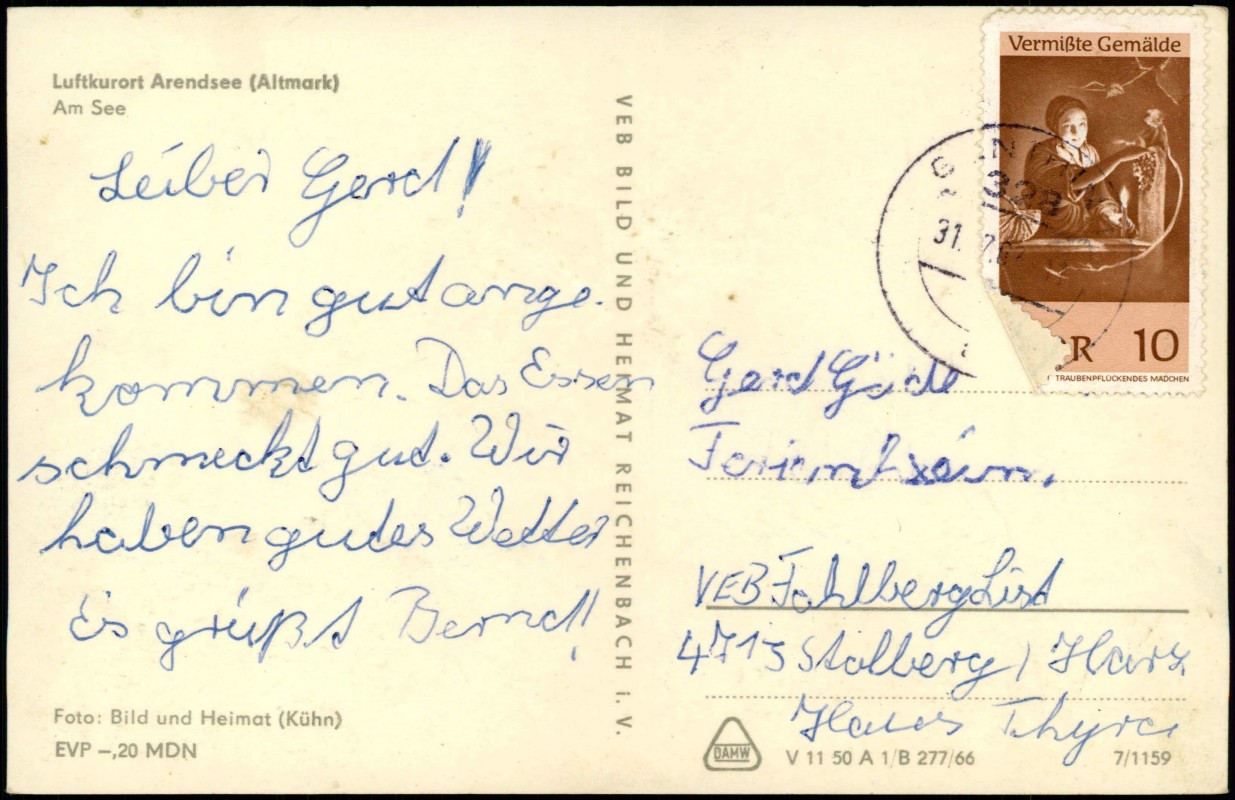 Luftkurort Arendsee (Altmark)
Am See
Leiber Gerd!
Ich bin gut ange-
kommen. Das Essen
schmeckt gut. Wir
haben gutes Wetter
Es grüßt Bernd!
Foto: Bild und Heimat (Kühn)
EVP –,20 MDN
VEB BILD UND HEIMAT REICHENBACH i. V.
Vermißte Gemälde
328
31.
DR 10
TRAUBENPFLÜCKENDES MÄDCHEN
Gerd
VEB Fahlberg List
4713 Stolberg / Harz
Haus Thyra
DAMW
V 11 50 A 1/B 277/66
7/1159